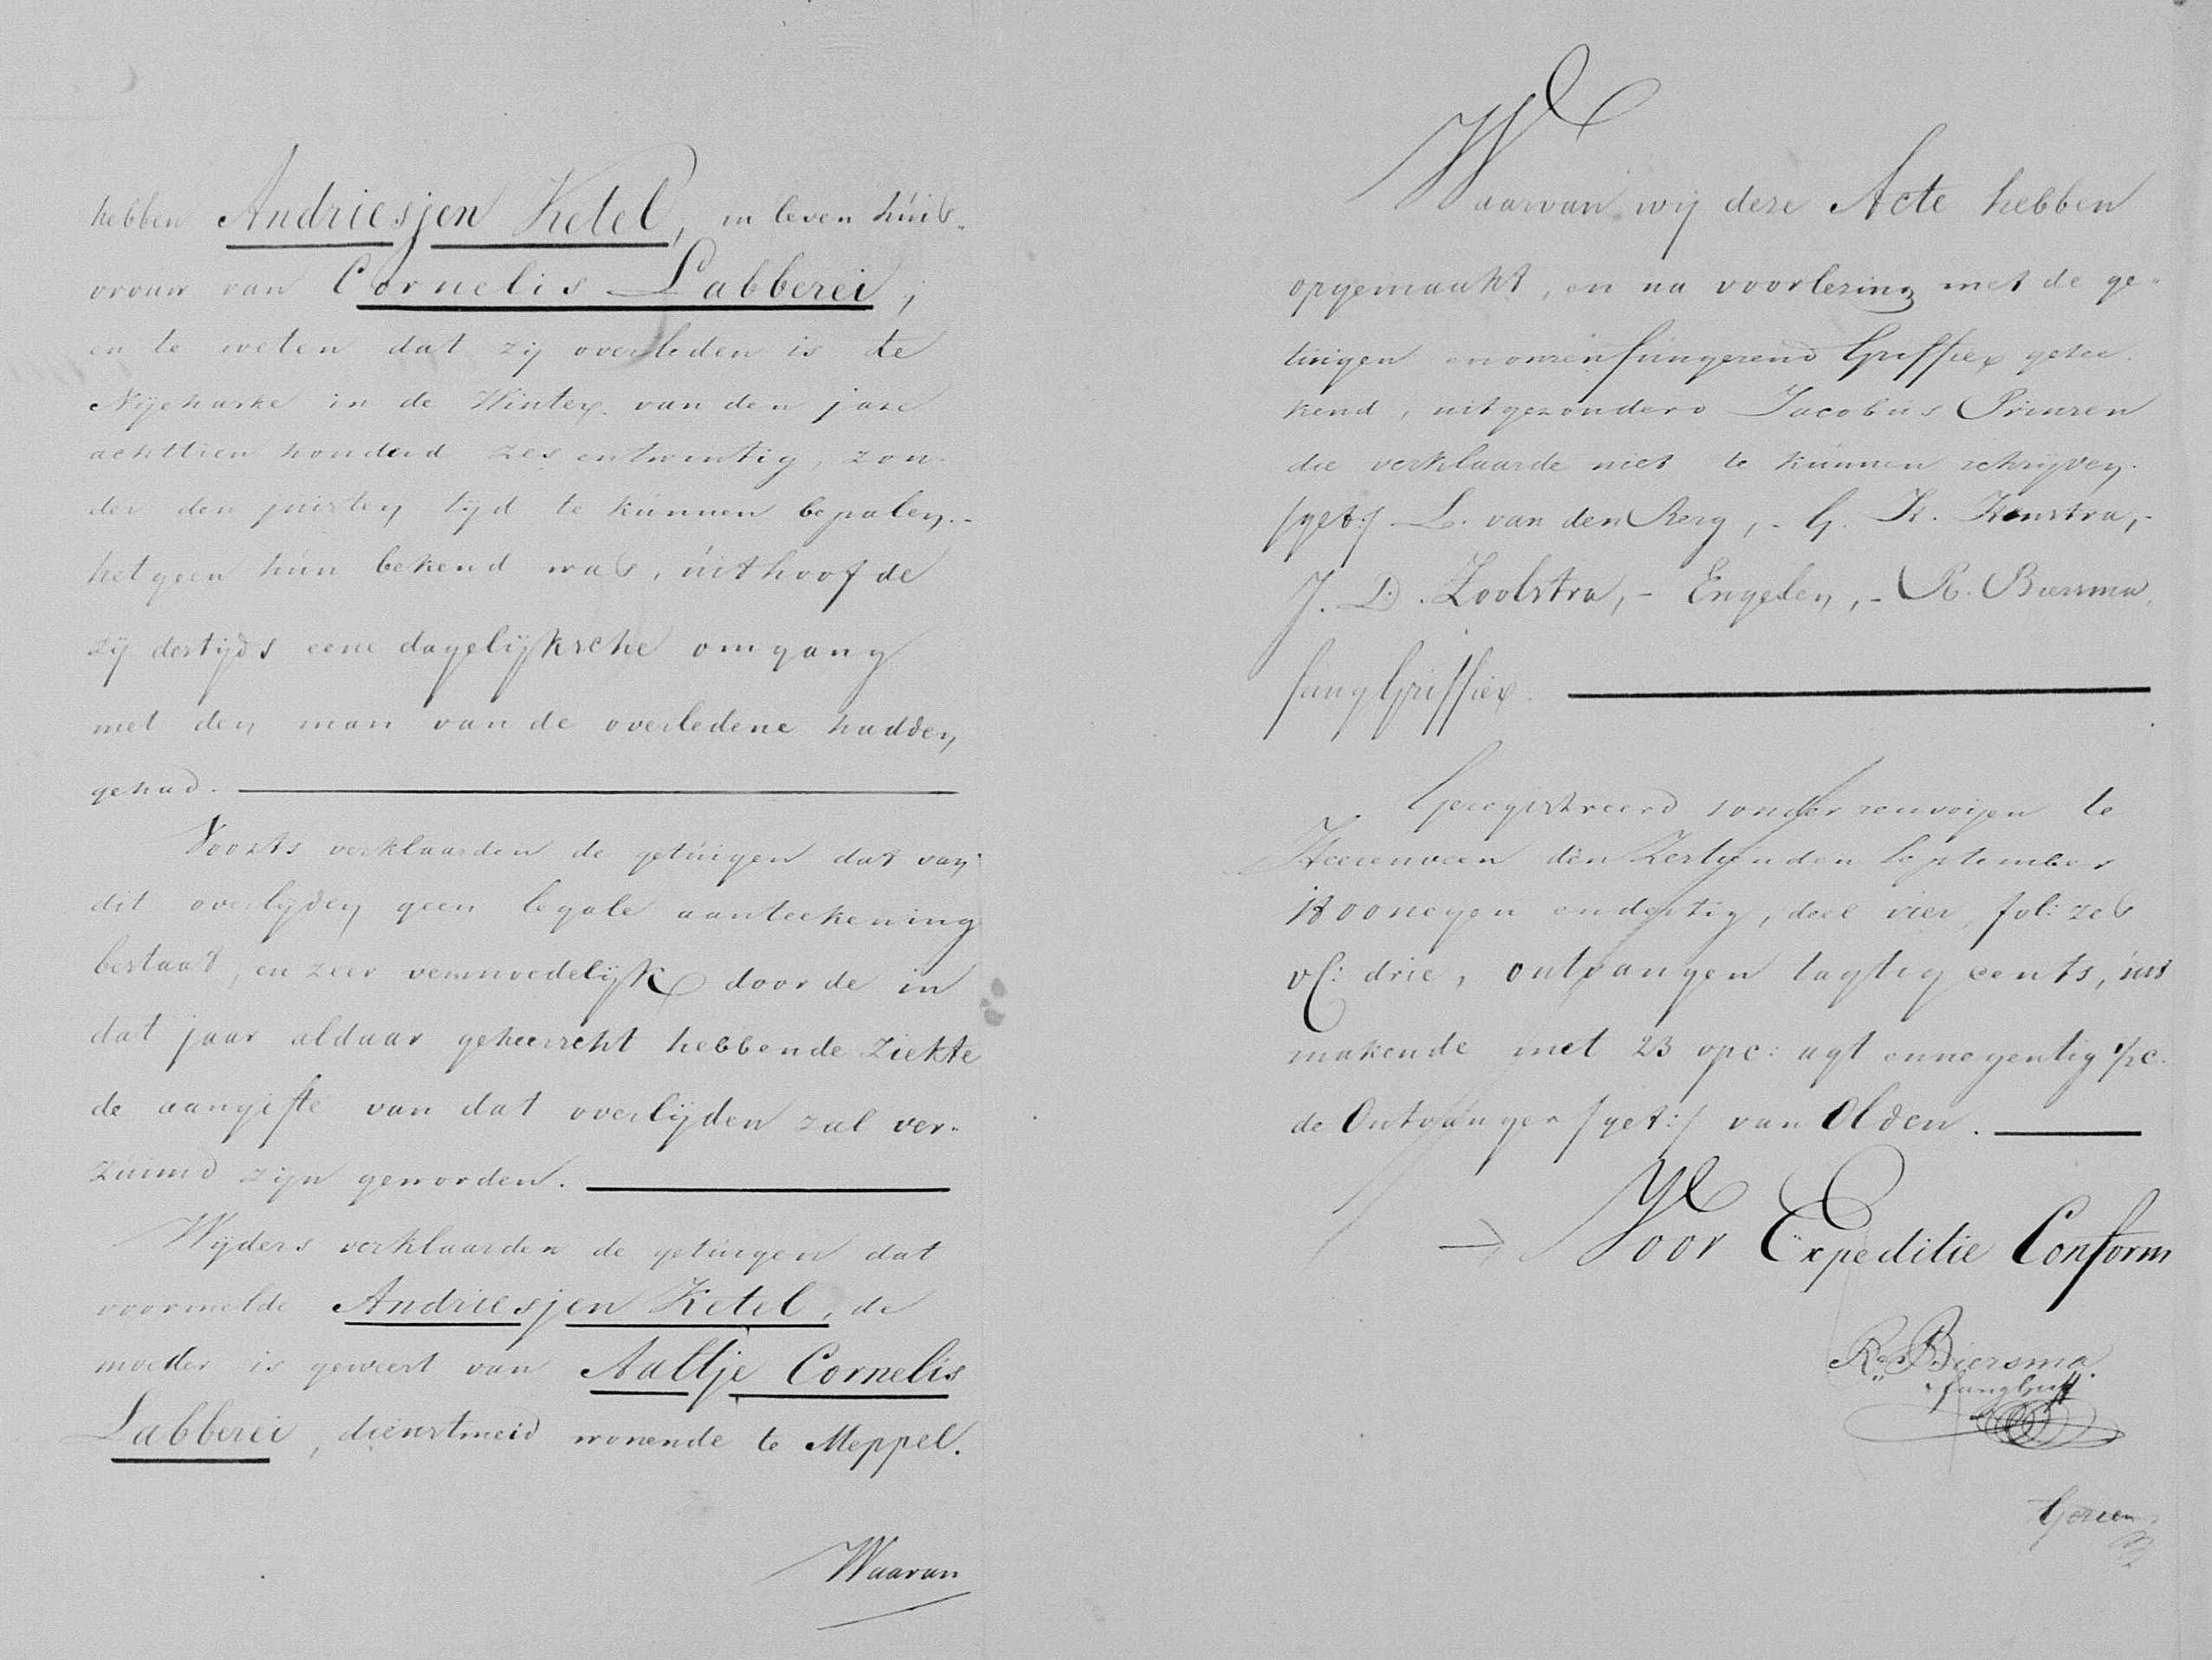 hebben Andriesjen Ketel, in leven huis„
vrouw van Cornelis Labberei,
en te weten dat zij overleden is te
Nijeharke in de Winter van den jare
achttien honderd zes entwintig, zon-
der den juisten tijd te kunnen bepalen.-
hetgeen hun bekend was, uithoofde
zij destijds eene dagelijksche omgang
met den man van de overledene hadden
gehad.
Voorts verklaarden de getuigen dat van
dit overlijden geen legale aanteekening
bestaat, en zeer vermoedelijk door de in
dat jaar aldaar geheerscht hebbende ziekte
de aangifte van dat overlijden zal ver-
zuimd zijn geworden.
Wijders verklaarden de getuigen dat
voormelde Andriesjen Ketel, de
moeder is geweest van Aaltje Cornelis
Labberei, dienstmeid wonende te Meppel.
Waarvan
Waarvan wij deze Acte hebben
opgemaakt, en na voorlezing met de ge„
tuigen en onzen fungerend Griffier getee-
kend, uitgezonderd Jacobus Prinsen
die verklaarde niet te kunnen schrijven.
/get:/ L. van den Berg, - G. K. Kenstra, -
J. D. Zoolstra, - Engelen, - R. Biersma,
fung Griffier.
Geregistreerd zonder renvoijen te
Heerenveen den Zestienden September
1800 negen endertig, deel vier, fol: zes
vC: drie, ontvangen tagtig cents, uit
makende met 23 opc: agt ennegentig ½ c.
de Ontvanger /get:/ van Olden.
Voor Expeditie Conform
R. Biersma
fung Griff
Gezien